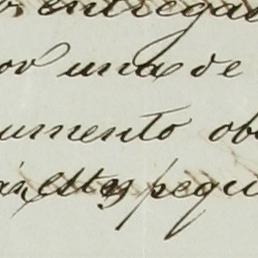 entregad
or una de
umento ob
pequ